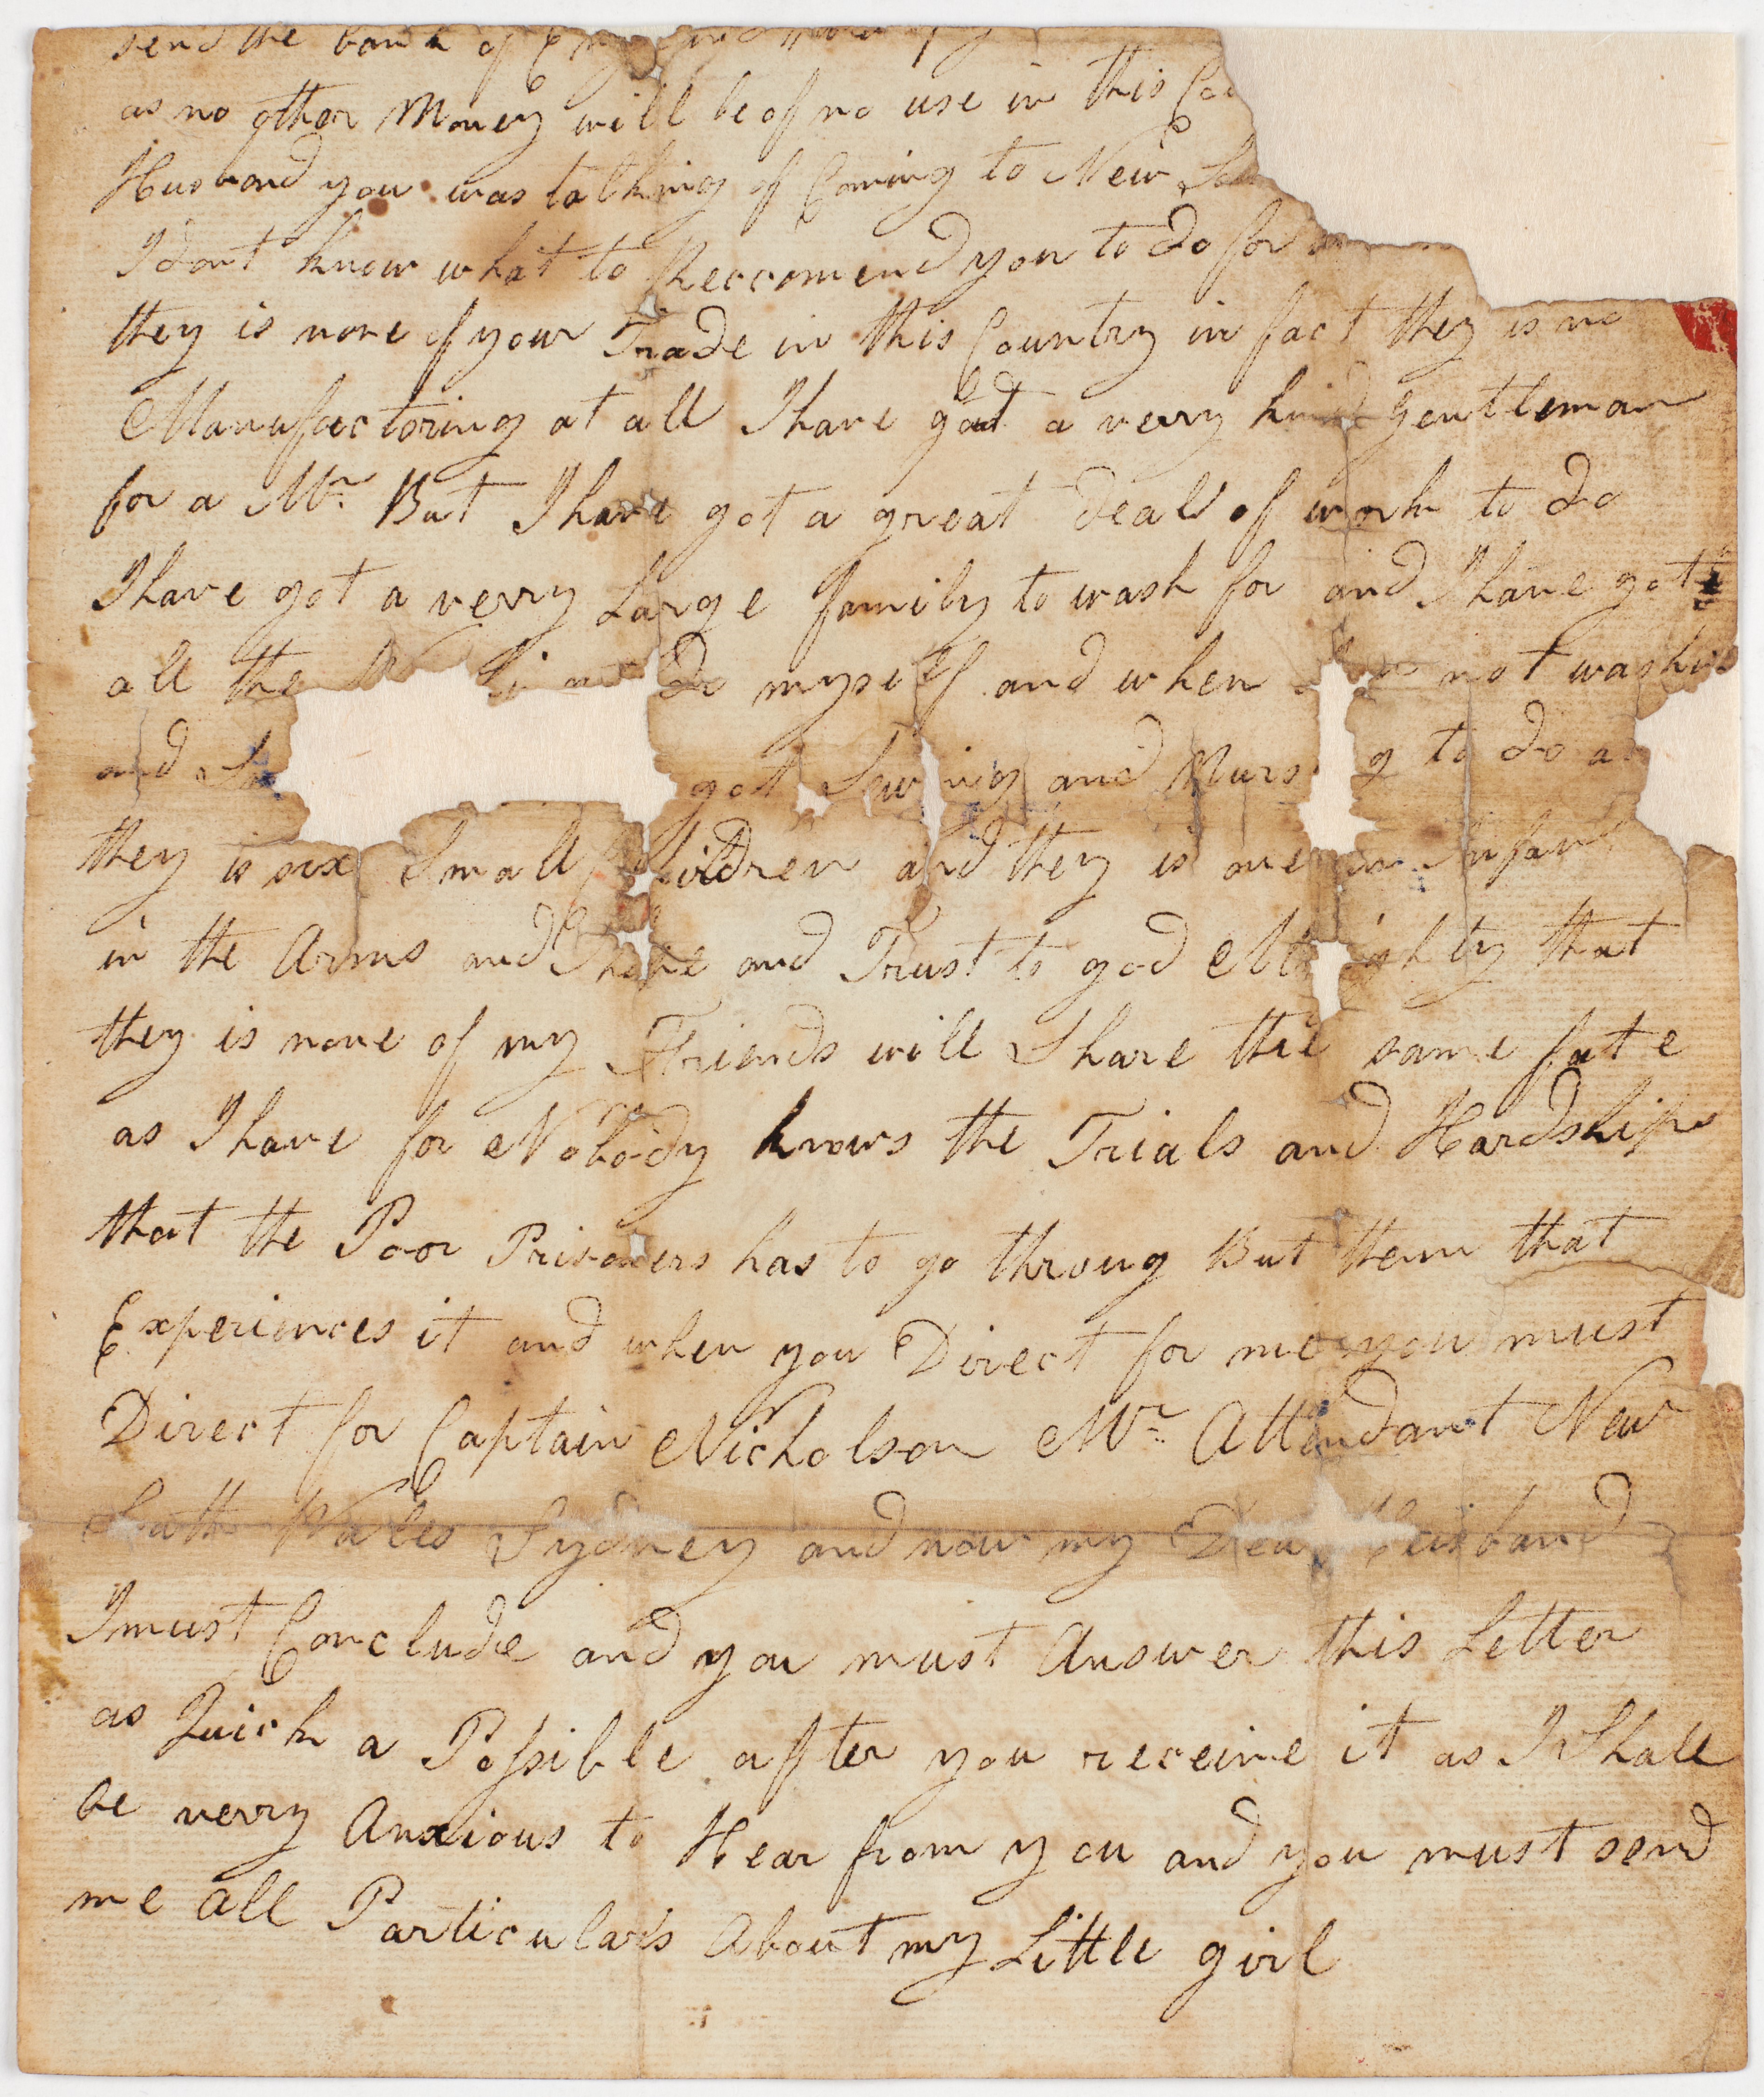 send the bank of
as no other Money will be of no use in this
Husband you was talking of Coming to New
I dont know what to Reccomend you to do for
they is none of your Trade in this Country in fact they is no
Manufactoring at all I have got a verry kind gentleman
for a Mr. But I have got a great deal of work to do
I have got a verry Large family to wash for and I have got
all the do myself and when not
and got Sewing and to do
they is six Small Children and they is one an
in the Arms and I hope and Trust to god that
they is none of my Friends will Share the same fate
as I have for Nobody knows the Trials and Hardships
that the Poor Prisoners has to go throug But them that
Experiences it and when you Direct for me you must
Direct for Captain Nicholson Mr. Attendant New
South Wales Sydney and now my Dear Husband
I must Conclude and you must Answer this Letter
as Quick a Possible after you receive it as I Shall
be verry Anxious to Hear from you and you must send
me all Particulars About my Little girl